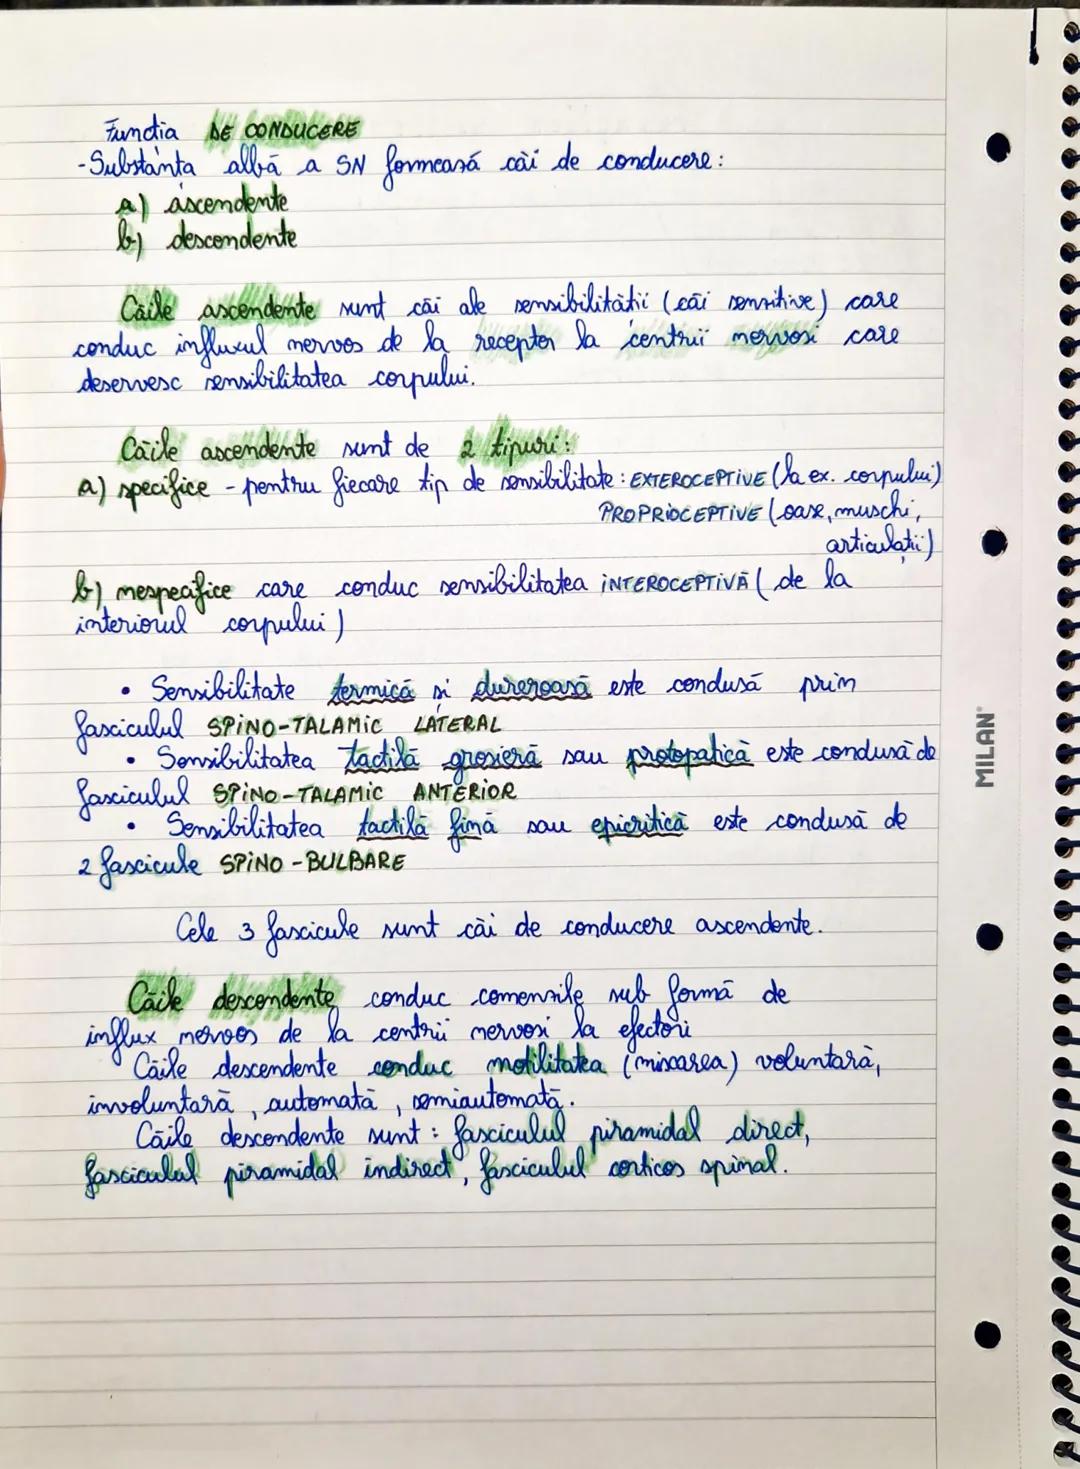 Funcția DE CONDUCERE
-Substanța albă a SN formează căi de conducere:
a) ascendente
b) descendente
Căile ascendente sunt căi ale sensibilității (căi senzitive) care
conduc influxul nervos de la receptor la centrii nervosi care
deservesc sensibilitatea corpului.
Căile ascendente sunt de 2 tipuri:
a) specifice - pentru fiecare tip de sensibilitate: EXTEROCEPTIVE (la ex. corpului)
PROPRIOCEPTIVE (oase, muschi,
articulații)
b) nespecifice care conduc sensibilitatea INTEROCEPTIVĂ (de la
interiorul corpului)
• Sensibilitate termică și dureroasă este condusă prin
fasciculul SPINO-TALAMIC LATERAL
• Sensibilitatea tactilă grosieră sau protopatică este condusă de
fasciculul SPINO-TALAMIC ANTERIOR
• Sensibilitatea tactilă fină sau epicritică este condusă de
2 fascicule SPINO-BULBARE
Cele 3 fascicule sunt căi de conducere ascendente.
Căile descendente conduc comenzile sub formă de
influx nervos de la centrii nervosi la efectori
Căile descendente conduc motilitatea (miscarea) voluntară,
involuntară, automată, semiautomată.
Căile descendente sunt: fasciculul piramidal direct,
fasciculul piramidal indirect, fasciculul corticos spinal.
MILAN